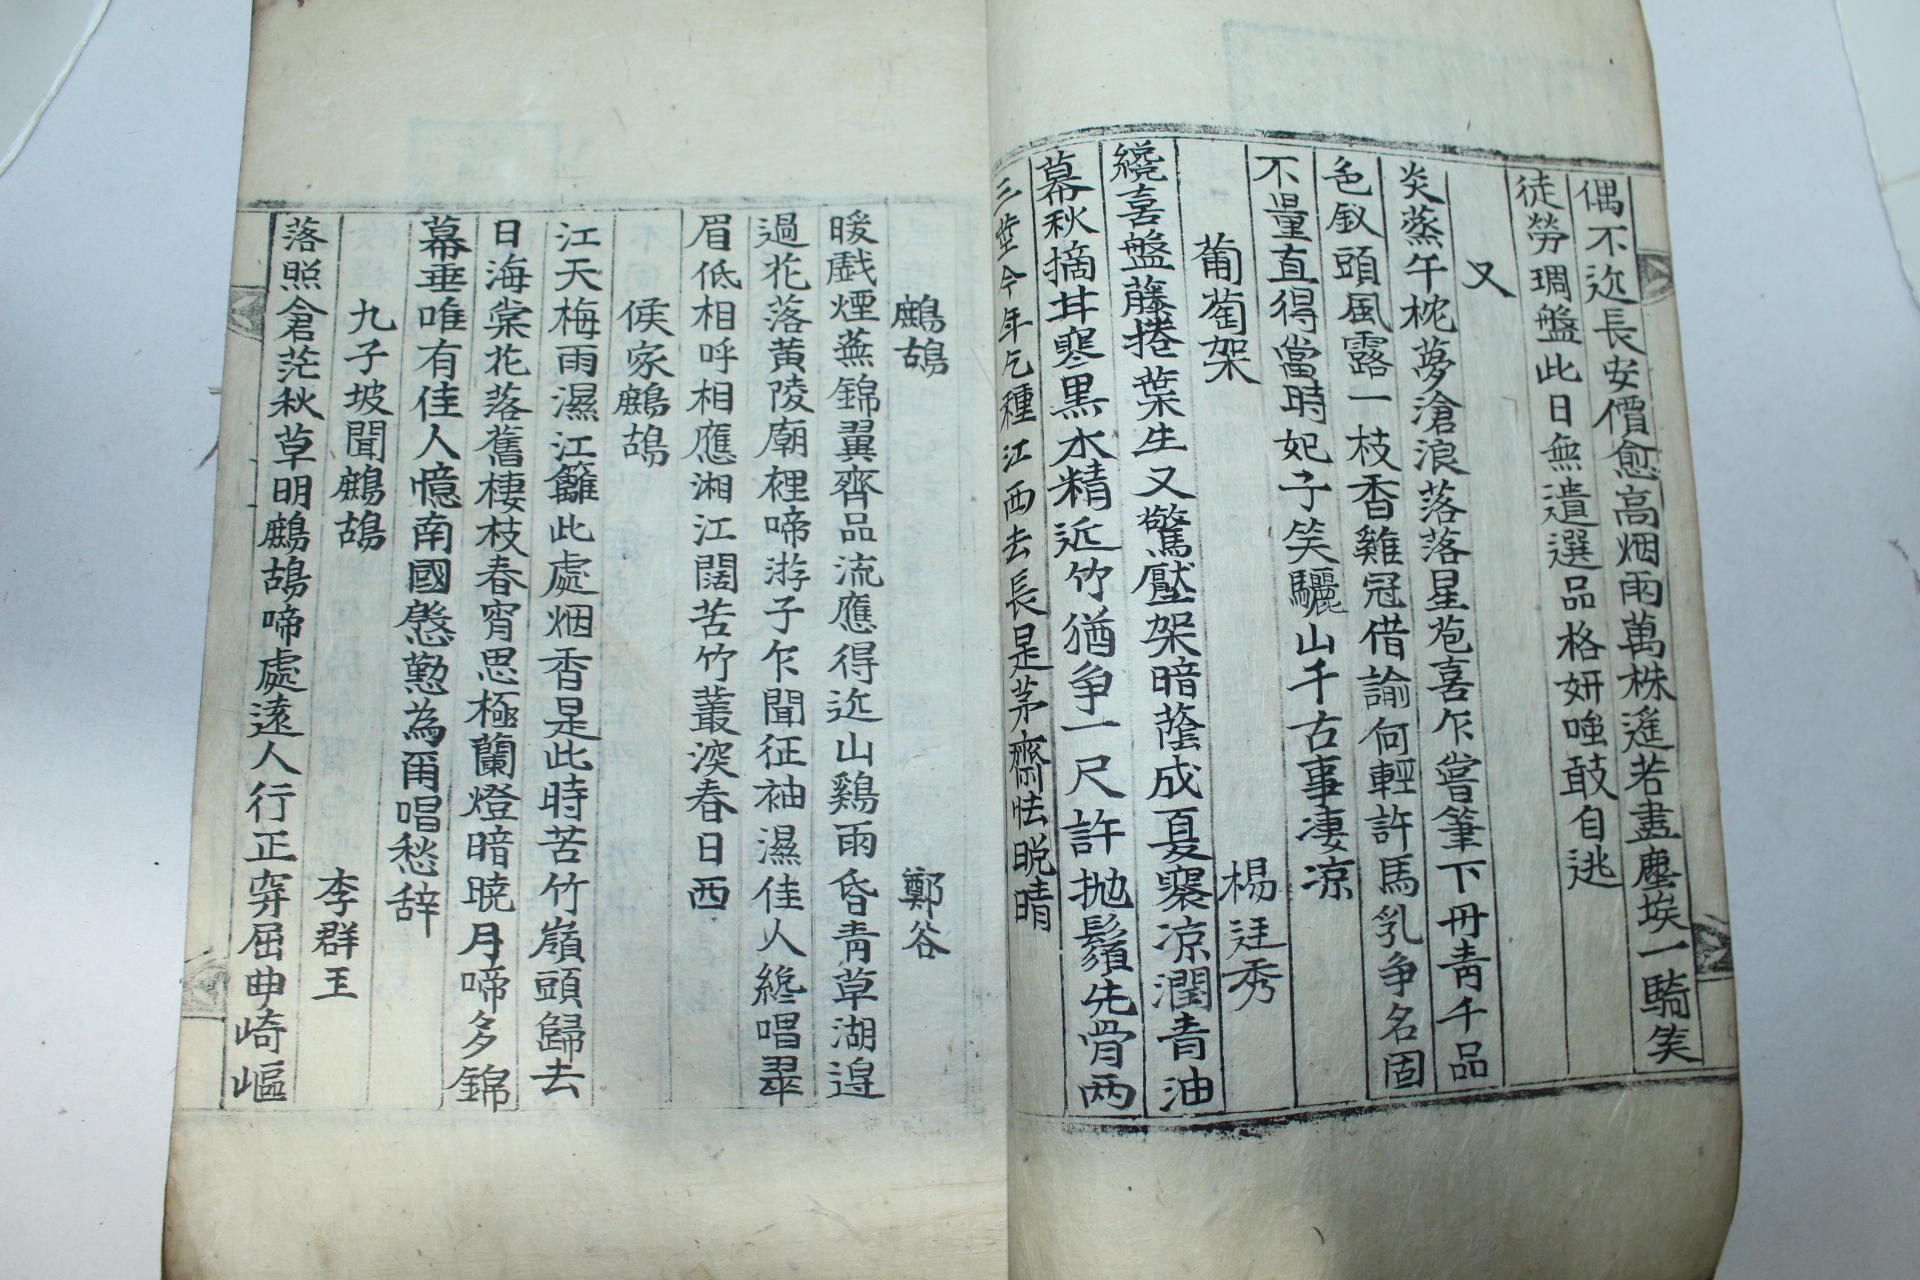 偶不近長安價愈高烟雨萬株遙若畫塵埃一騎笑
徒勞琱盤此日無遺選品格妍嗤敢自逃
又
炎蒸午枕夢滄浪落落星苞喜乍嘗筆下丹青千品
色釵頭風露一枝香雞冠借諭何輕許馬乳争名固
不量直得當時妃子笑驪山千古事凄凉
葡萄架
楊廷秀
纔喜盤藤捲葉生又驚壓架暗蔭成夏褰凉潤青油
幕秋摘甘寒黒水精近竹猶争一尺許抛鬚先骨两
三莖今年乞種江西去長是茅齋怯晚晴
鷓鴣
鄭谷
暖戲煙蕪錦翼齊品流應得近山鷄雨昏青草湖邉
過花落黄陵廟裡啼游子乍聞征袖濕佳人纔唱翠
眉低相呼相應湘江闊苦竹叢深春日西
侯家鷓鴣
江天梅雨濕江籬此處烟香是此時苦竹嶺頭歸去
日海棠花落舊棲枝春宵思極蘭燈暗暁月啼多錦
幕垂唯有佳人憶南國慇懃為爾唱愁辞
九子坡聞鷓鴣
李群玉
落照倉茫秋草明鷓鴣啼處逺人行正穿屈曲崎嶇